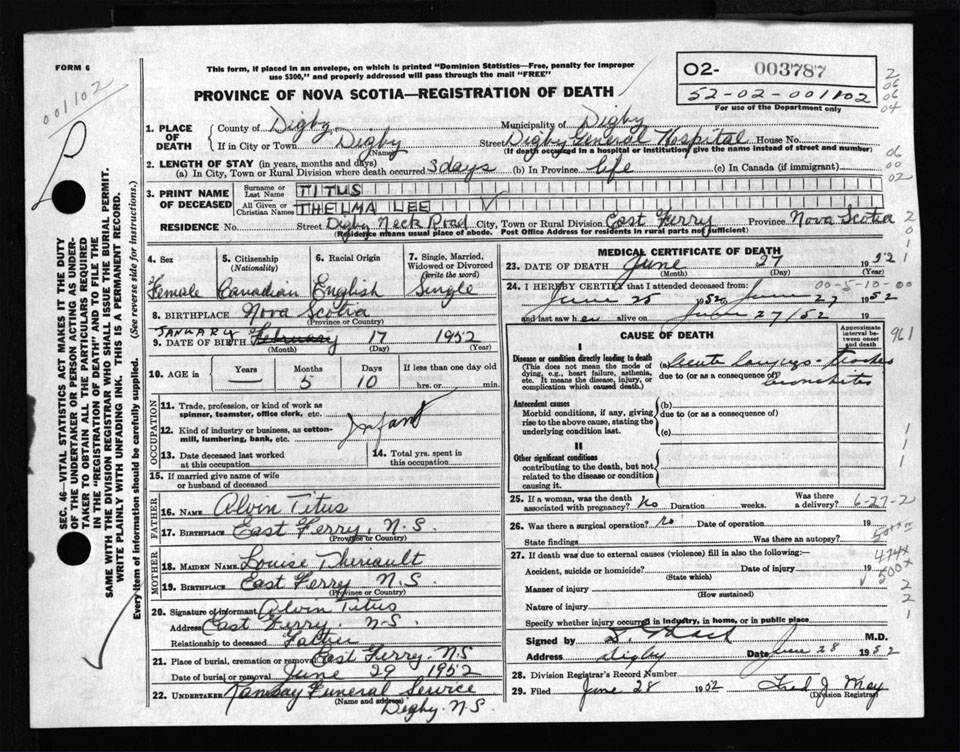 FORM 6
001102
This form, if placed in an envelope, on which is printed "Dominion Statistics—Free, penalty for improper
use $300," and properly addressed will pass through the mail "FREE"
PROVINCE OF NOVA SCOTIA—REGISTRATION OF DEATH
02- 003787
52-02-001102
For use of the Department only
1. PLACE OF DEATH { County of Digby Municipality of Digby
If in City or Town Digby (Name) Street Digby General Hospital House No.
(If death occurred in a hospital or institution, give the name instead of street and number)
2. LENGTH OF STAY (in years, months and days)
(a) In City, Town or Rural Division where death occurred 3 days (b) In Province life (c) In Canada (if immigrant)
3. PRINT NAME OF DECEASED { Surname or Last Name TITUS
All Given or Christian Names THELMA LEE
RESIDENCE No. Street Digby Neck Road City, Town or Rural Division East Ferry Province Nova Scotia
(Residence means usual place of abode. Post Office Address for residents in rural parts not sufficient)
4. Sex Female
5. Citizenship (Nationality) Canadian
6. Racial Origin English
7. Single, Married, Widowed or Divorced (write the word) Single
8. BIRTHPLACE Nova Scotia
(Province or Country)
JANUARY
9. DATE OF BIRTH February 17 1952
(Month) (Day) (Year)
10. AGE Years — Months 5 Days 10 If less than one day old
hrs. or min.
OCCUPATION
11. Trade, profession, or kind of work as
spinner, teamster, office clerk, etc.
12. Kind of industry or business, as cotton-
mill, lumbering, bank, etc.
Infant
13. Date deceased last worked
at this occupation
14. Total yrs. spent in
this occupation
15. If married give name of wife
or husband of deceased
FATHER
16. NAME Alvin Titus
17. BIRTHPLACE East Ferry, N.S.
(Province or Country)
MOTHER
18. MAIDEN NAME Louise Theriault
19. BIRTHPLACE East Ferry N.S.
(Province or Country)
20. Signature of informant Alvin Titus
Address East Ferry, N-S.
Relationship to deceased Father
21. Place of burial, cremation or removal East Ferry, N.S
Date of burial or removal June 29 1952
22. UNDERTAKER Ramsay Funeral Service
(Name and address)
Digby. N.S.
MEDICAL CERTIFICATE OF DEATH
23. DATE OF DEATH June 27 1952
(Month) (Day)
24. I HEREBY CERTIFY that I attended deceased from:
00-5-10-00
June 25 1952 to June 27 1952
and last saw her alive on June 27/52 19
CAUSE OF DEATH
Approximate interval between onset and death
961
I
Disease or condition directly leading to death
(This does not mean the mode of
dying, e.g., heart failure, asthenia,
etc. It means the disease, injury, or
complication which caused death.)
(a)
due to (or as a consequence of)
bronchitis
Antecedent causes
Morbid conditions, if any, giving
rise to the above cause, stating the
underlying condition last.
(b)
due to (or as a consequence of)
(c)
II
Other significant conditions
contributing to the death, but not
related to the disease or condition
causing it.
25. If a woman, was the death
associated with pregnancy? No Duration weeks. Was there
a delivery?
6-27-2
26. Was there a surgical operation? No Date of operation 19
State findings Was there an autopsy?
27. If death was due to external causes (violence) fill in also the following:—
Accident, suicide or homicide? Date of injury 19
(State which)
Manner of injury
(How sustained)
Nature of injury
Specify whether injury occurred in industry, in home, or in public place
Signed by M.D.
Address Digby Date June 28 1952
28. Division Registrar's Record Number
29. Filed June 28 1952 Fred J. May
(Division Registrar)
SEC. 46—VITAL STATISTICS ACT MAKES IT THE DUTY
OF THE UNDERTAKER OR PERSON ACTING AS UNDER-
TAKER TO OBTAIN ALL THE PARTICULARS REQUIRED
IN THE "REGISTRATION OF DEATH" AND TO FILE THE
SAME WITH THE DIVISION REGISTRAR WHO SHALL ISSUE THE BURIAL PERMIT.
WRITE PLAINLY WITH UNFADING INK. THIS IS A PERMANENT RECORD.
Every item of information should be carefully supplied. (See reverse side for instructions.)